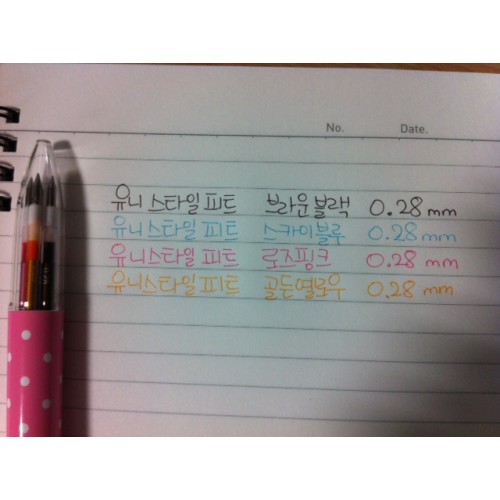 No. Date.
유니 스타일 피트 브라운블랙 0.28 mm
유니 스타일 피트 스카이블루 0.28 mm
유니 스타일 피트 로즈핑크 0.28 mm
유니 스타일 피트 골든옐로우 0.28 mm